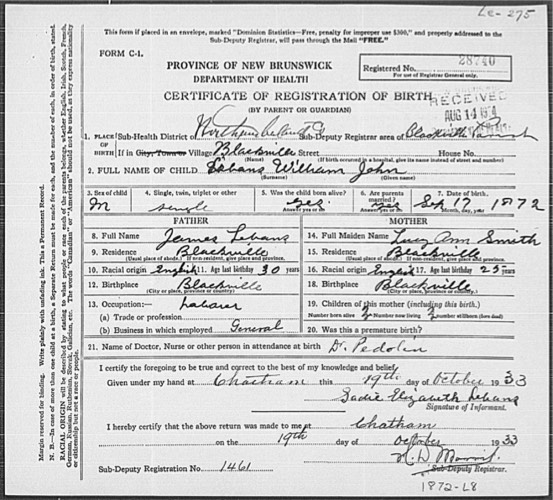 Le-275
This form if placed in an envelope, marked "Dominion Statistics—Free, penalty for improper use $300," and properly addressed to the
Sub-Deputy Registrar, will pass through the Mail "FREE."
FORM C-1.
PROVINCE OF NEW BRUNSWICK
DEPARTMENT OF HEALTH
Registered No. 28740
For use of Registrar General only.
CERTIFICATE OF REGISTRATION OF BIRTH
(BY PARENT OR GUARDIAN)
RECEIVED
AUG 14
1. PLACE OF BIRTH
Sub-Health District of Northumberland Co Sub-Deputy Registrar area of Blackville Parish
If in City, Town or Village Blackville Street House No.
(Name) (If birth occurred in a hospital, give its name instead of street and number)
2. FULL NAME OF CHILD Lebans William John
(Surname) (Given name)
3. Sex of child M
4. Single, twin, triplet or other single
5. Was the child born alive? yes. Answer yes or no
6. Are parents married? yes Answer yes or no
7. Date of birth. Sep 17 1872
Month, day, year
FATHER
8. Full Name James Lebans
9. Residence Blackville
(Usual place of abode.) If non-resident, give place and province.
10. Racial origin English 11. Age last birthday 30 years
12. Birthplace Blackville
(City or place, province or country)
13. Occupation:— Laborer
(a) Trade or profession
(b) Business in which employed General
MOTHER
14. Full Maiden Name Lucy Ann Smith
15. Residence Blackville
(Usual place of abode.) If non-resident, give place and province.
16. Racial origin English 17. Age last birthday 25 years
18. Birthplace Blackville
(City or place, province or country)
19. Children of this mother (including this birth.)
Number born alive 2 Number now living 2 number stillborn (born dead)
20. Was this a premature birth?
21. Name of Doctor, Nurse or other person in attendance at birth Dr. Pedolin
I certify the foregoing to be true and correct to the best of my knowledge and belief.
Given under my hand at Chatham this 19th day of October 1933
Sadie Elizabeth Lebans
Signature of Informant.
I hereby certify that the above return was made to me at Chatham
on the 19th day of October 1933
Sub-Deputy Registration No. 1461
Sub-Deputy Registrar.
1872-L8
Margin reserved for binding. Write plainly with unfading ink. This is a Permanent Record.
N. B.—In case of more than one child at a birth, a Separate Return must be made for each, and the number of each, in order of birth, stated.
RACIAL ORIGIN will be described by stating to what people or race each of the parents belongs, whether English, Irish, Scotch, French,
German, Russian, Ruthenian, Slovak, Galician, etc. The words "Canadian" or "American" should not be used, as they express nationality
or citizenship but not a race or people.